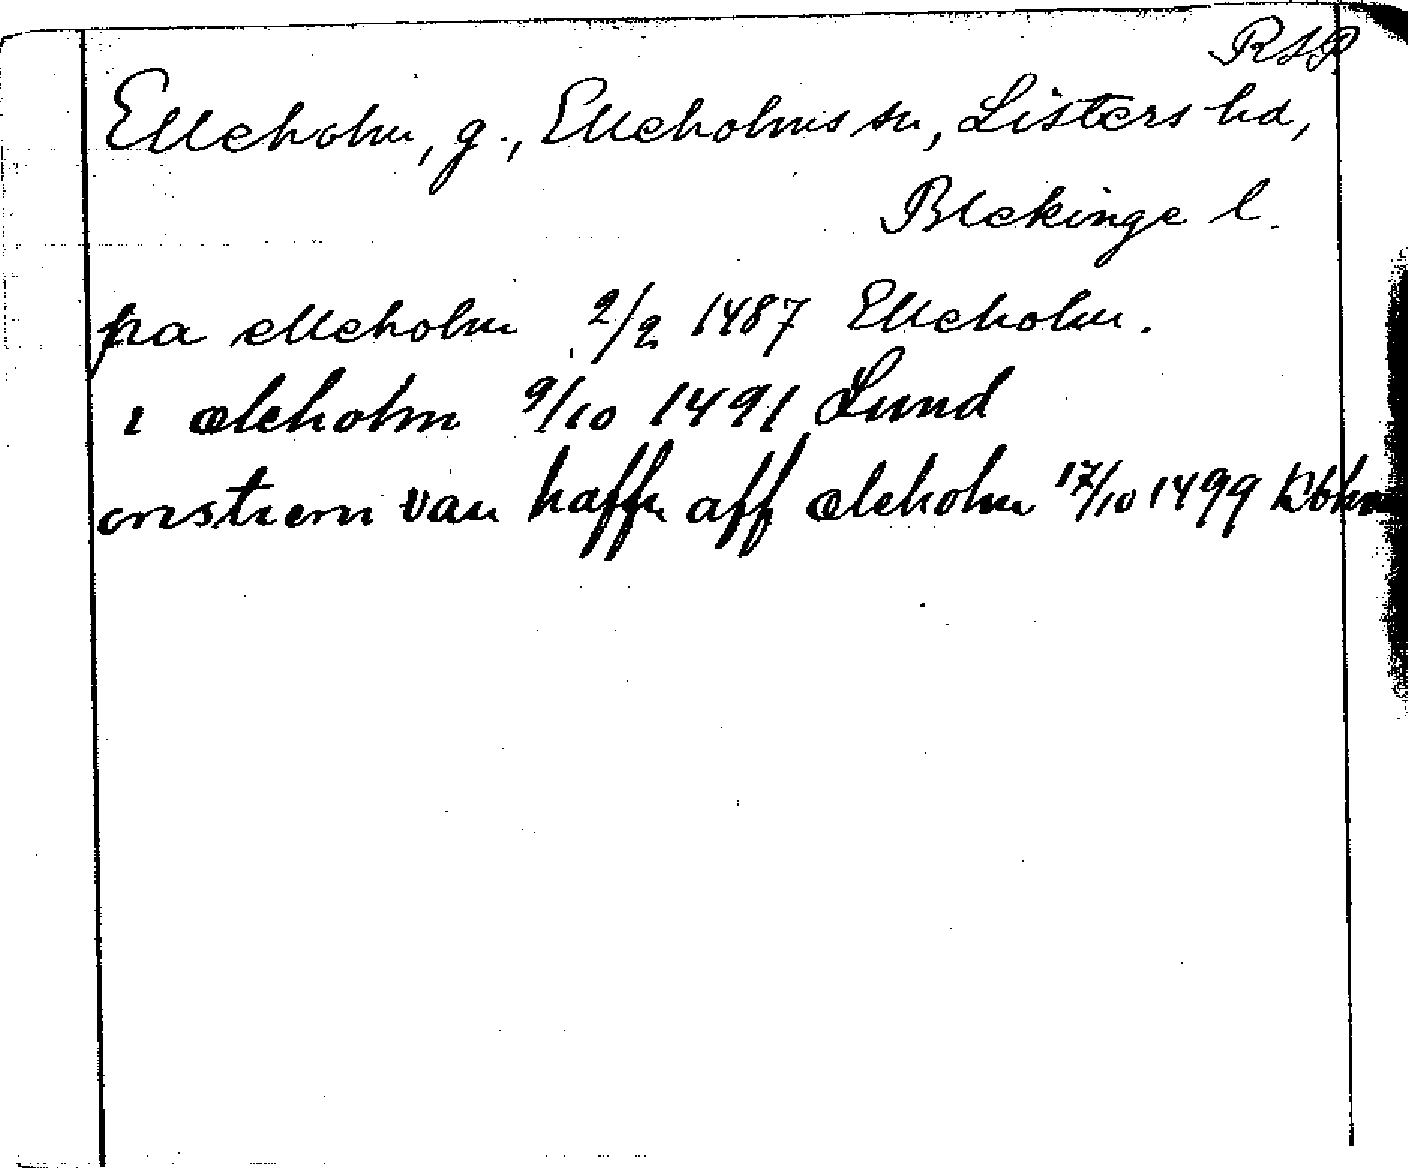 RSP
Elleholm, g., Elleholms sn, Listers hd,
Blekinge l.
pa elleholm 2/2 1487 Elleholm.
i æleholm 9/10 1491 Lund
van haffn aff æleholm 17/10 1499 Kbhn